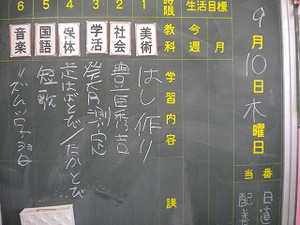 9月10日木曜日
当番
日直
配膳
生活目標
今週 月
時限 教科 学習内容 課
1 美術 はし作り
2 社会 豊臣秀吉
3 学活 発育測定
4 保体 走はばとび/たかとび
5 国語 短歌
6 音楽